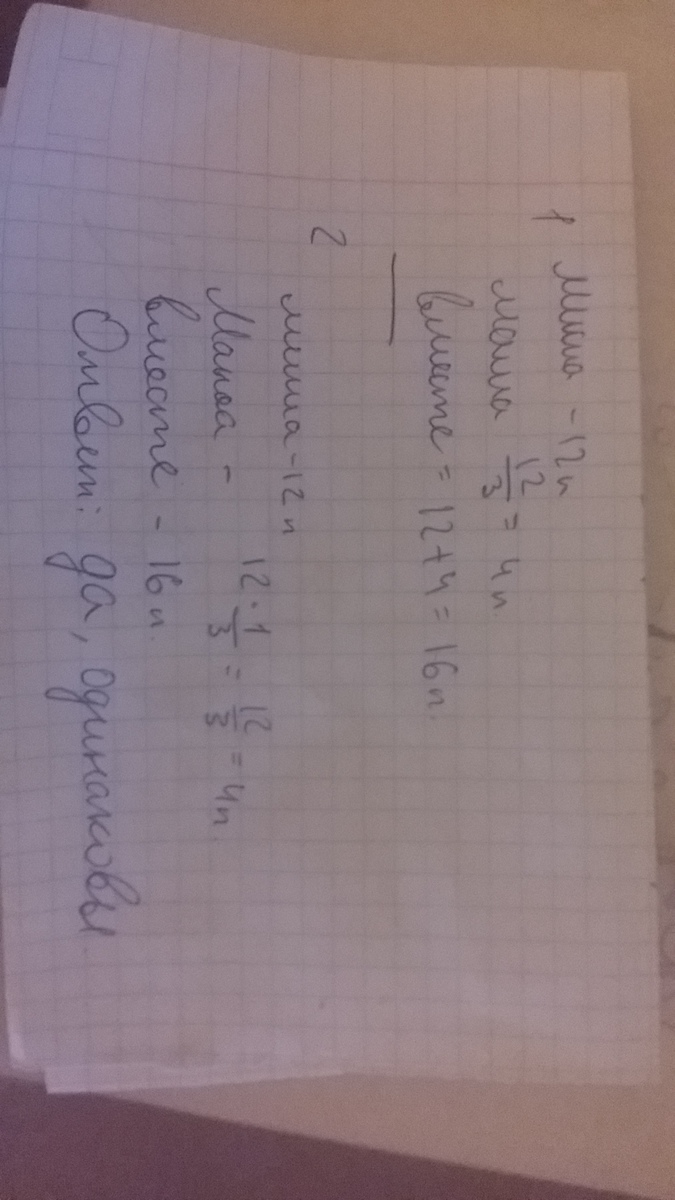 1 Миша - 12 п
маша 12/3 = 4 п.
вместе = 12 + 4 = 16 п.
2 миша - 12 п
Маша - 12 · 1/3 = 12/3 = 4 п.
вместе - 16 п.
Ответ: да, одинаковы